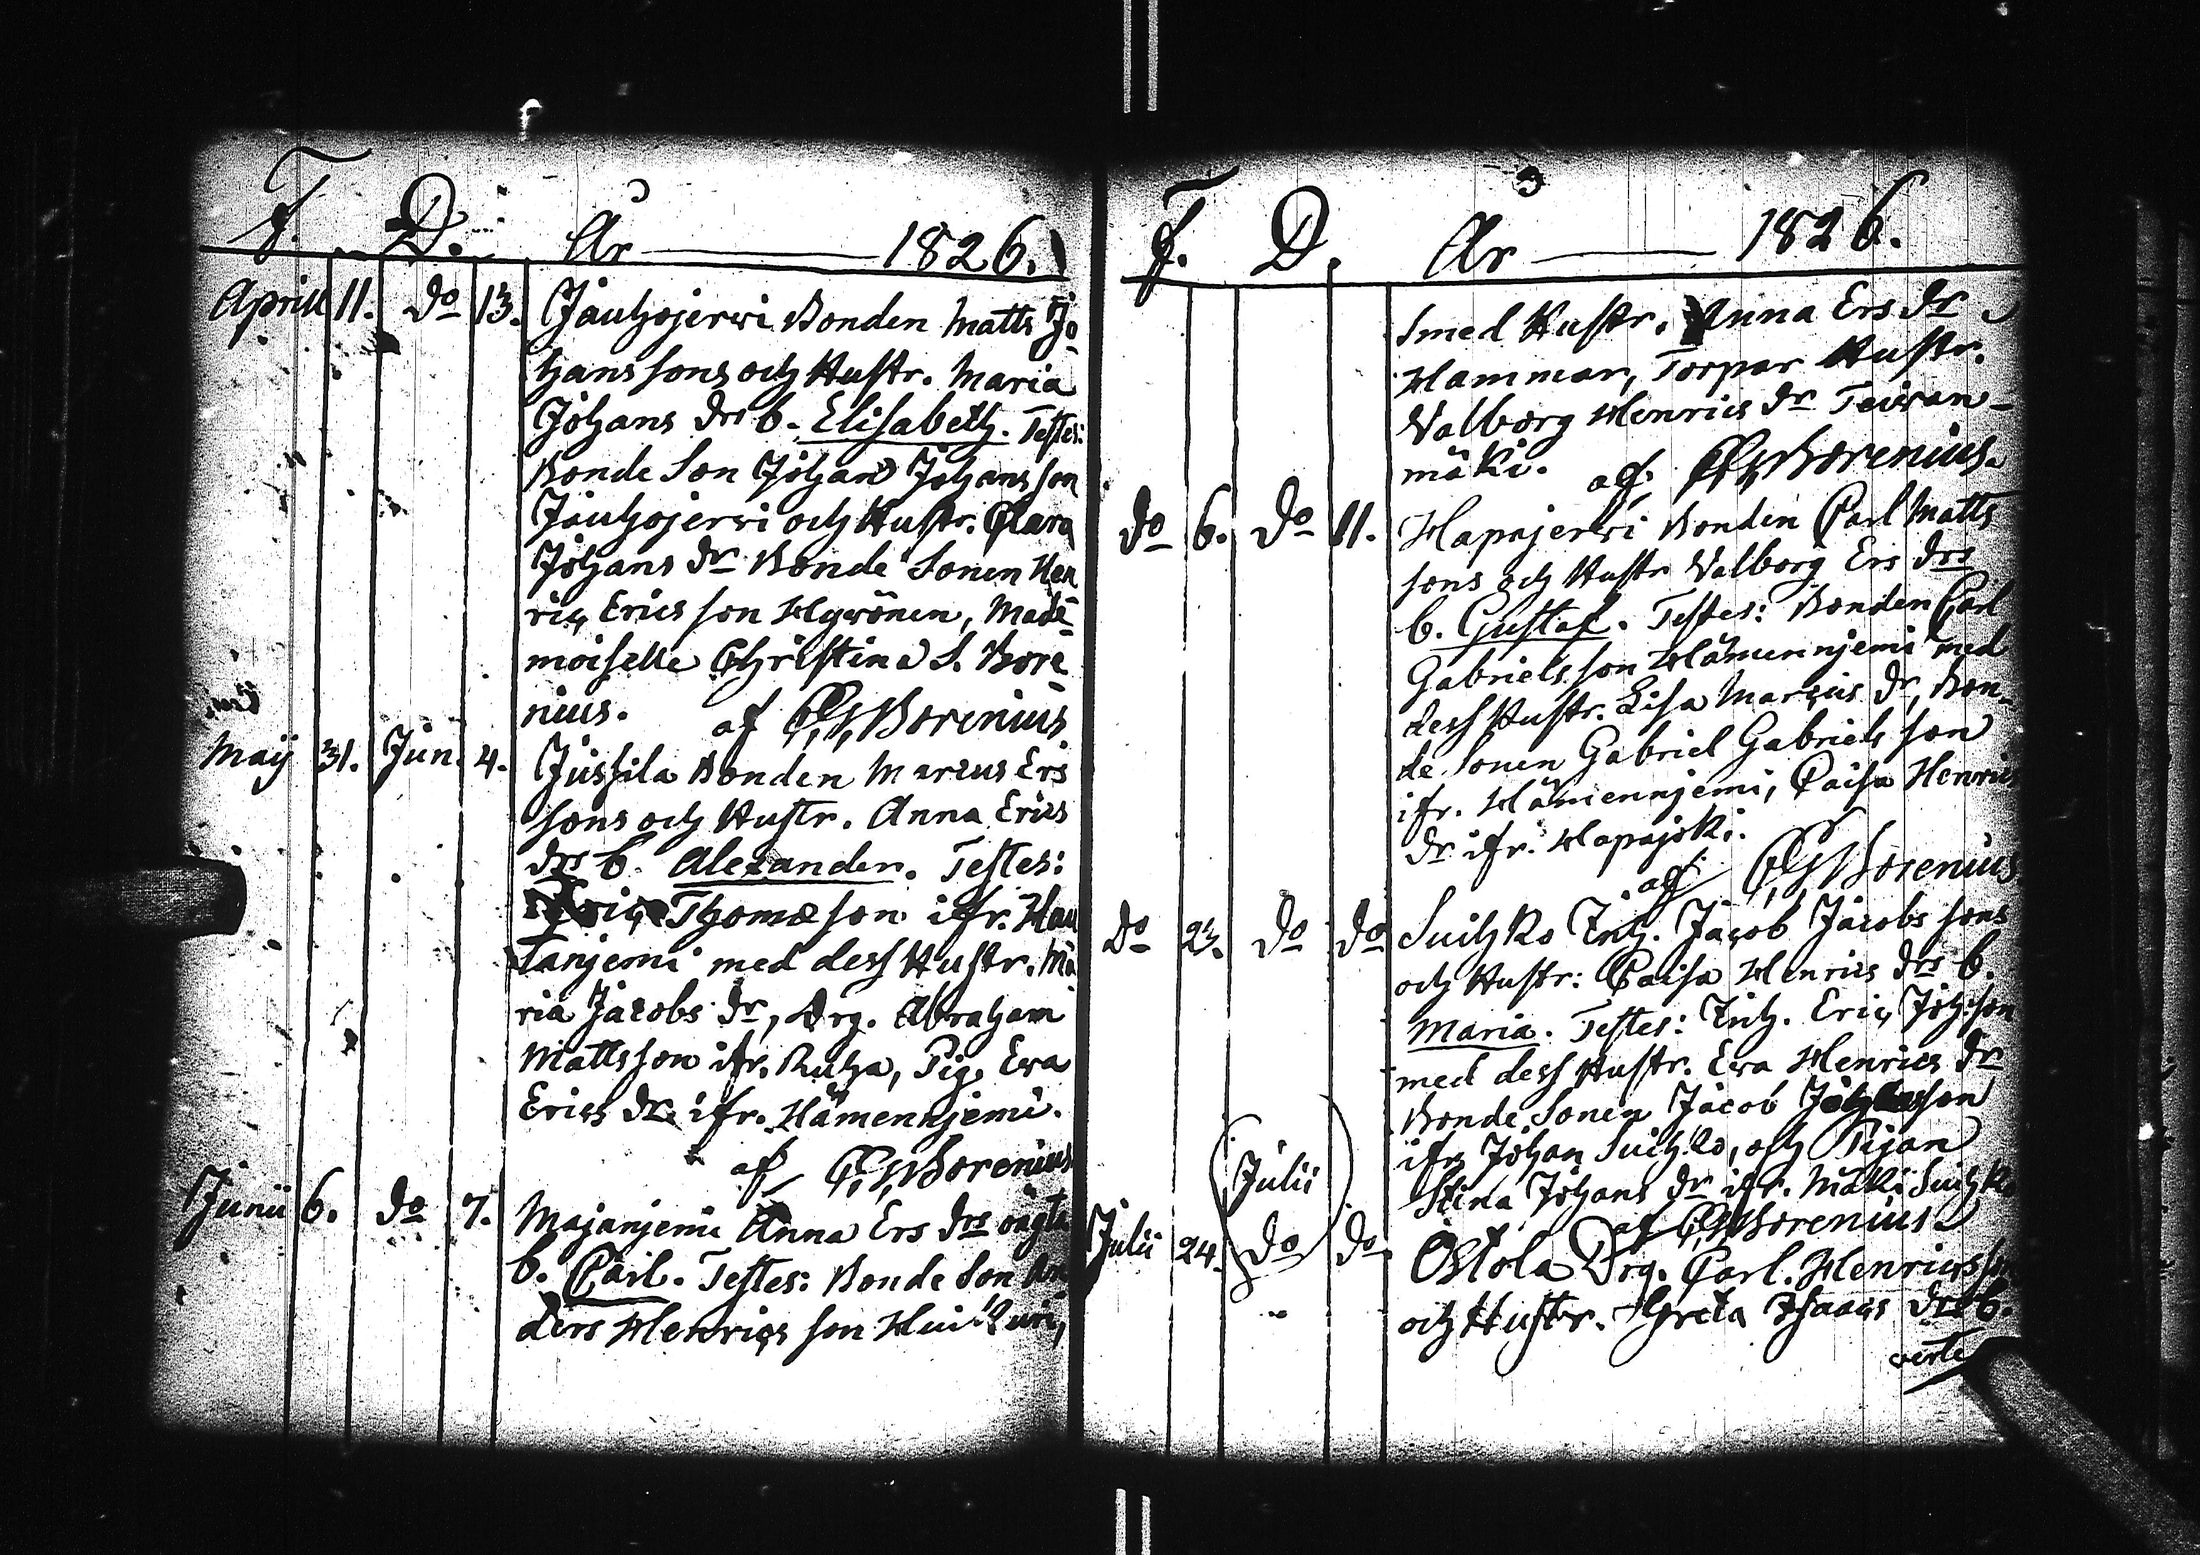 F. D. År 1826.
Aprill 11. Do 13. Jauhojerwi Bonden Matts Jo
hanssons och Hustr. Maria
Johans drs b. Elisabeth. Testes:
Bonde Son Johan Johansson
Jauhojerwi och Hustr. Clara
Johans dr Bonde Sonen Hen
ric Ericsson Hywönen, Made
moiselle Christina S. Bore
nius. af C. G. Borenius
Maij 31. Jun. 4. Jussila Bonden Marcus Ers
sons och Hustr. Anna Erics
drs b. Alexander. Testes:
Thomæson ifr. Hau
tanjemi med dess Hustr. Ma
ria Jacobs dr, Drg. Abraham
Mattsson ifr. Ruha, Pig. Ewa
Erics dr. ifr. Hämennjemi.
af C. G. Borenius
Junii 6. Do 7. Majanjemi Anna Ers drs oägta
b. Carl. Testes: Bonde Son An
ders Henricsson Huikuri,
F. D. År 1826.
Smed Hustr. Anna Ers dr
Hammar, Torpar Hustr.
Walborg Henrics dr Teiwan-
mäki. af C. G. Borenius.
Do 6. Do 11. Hapajerwi Bonden Carl Matts
sons och Hustr Walborg Ers drs
b. Gustaf. Testes: Bonden Carl
Gabrielsson Hämennjemi med
dess Hustr. Lisa Marcus dr, Bon-
de Sonen Gabriel Gabriels son
ifr. Hämennjemi, Caisa Henrics
dr ifr. Hapajoki.
af C. G. Borenius
Do 23. Do Do Suihko Inh. Jacob Jacobs sons
och Hustr: Caisa Henrics drs b.
Maria. Testes: Inh. Eric Joh:son
med dess Hustr. Ewa Henrics dr
Bonde Sonen Jacob
ifr Johan Suihko, och Pigan
Stina Johans dr ifr. Mäki Suihko
af C. G. Borenius
(Julii)
Julii 24. Do Do. Ostola Drg. Carl. Henricsson
och Hustr. Greta Isaacs drs b.
verte